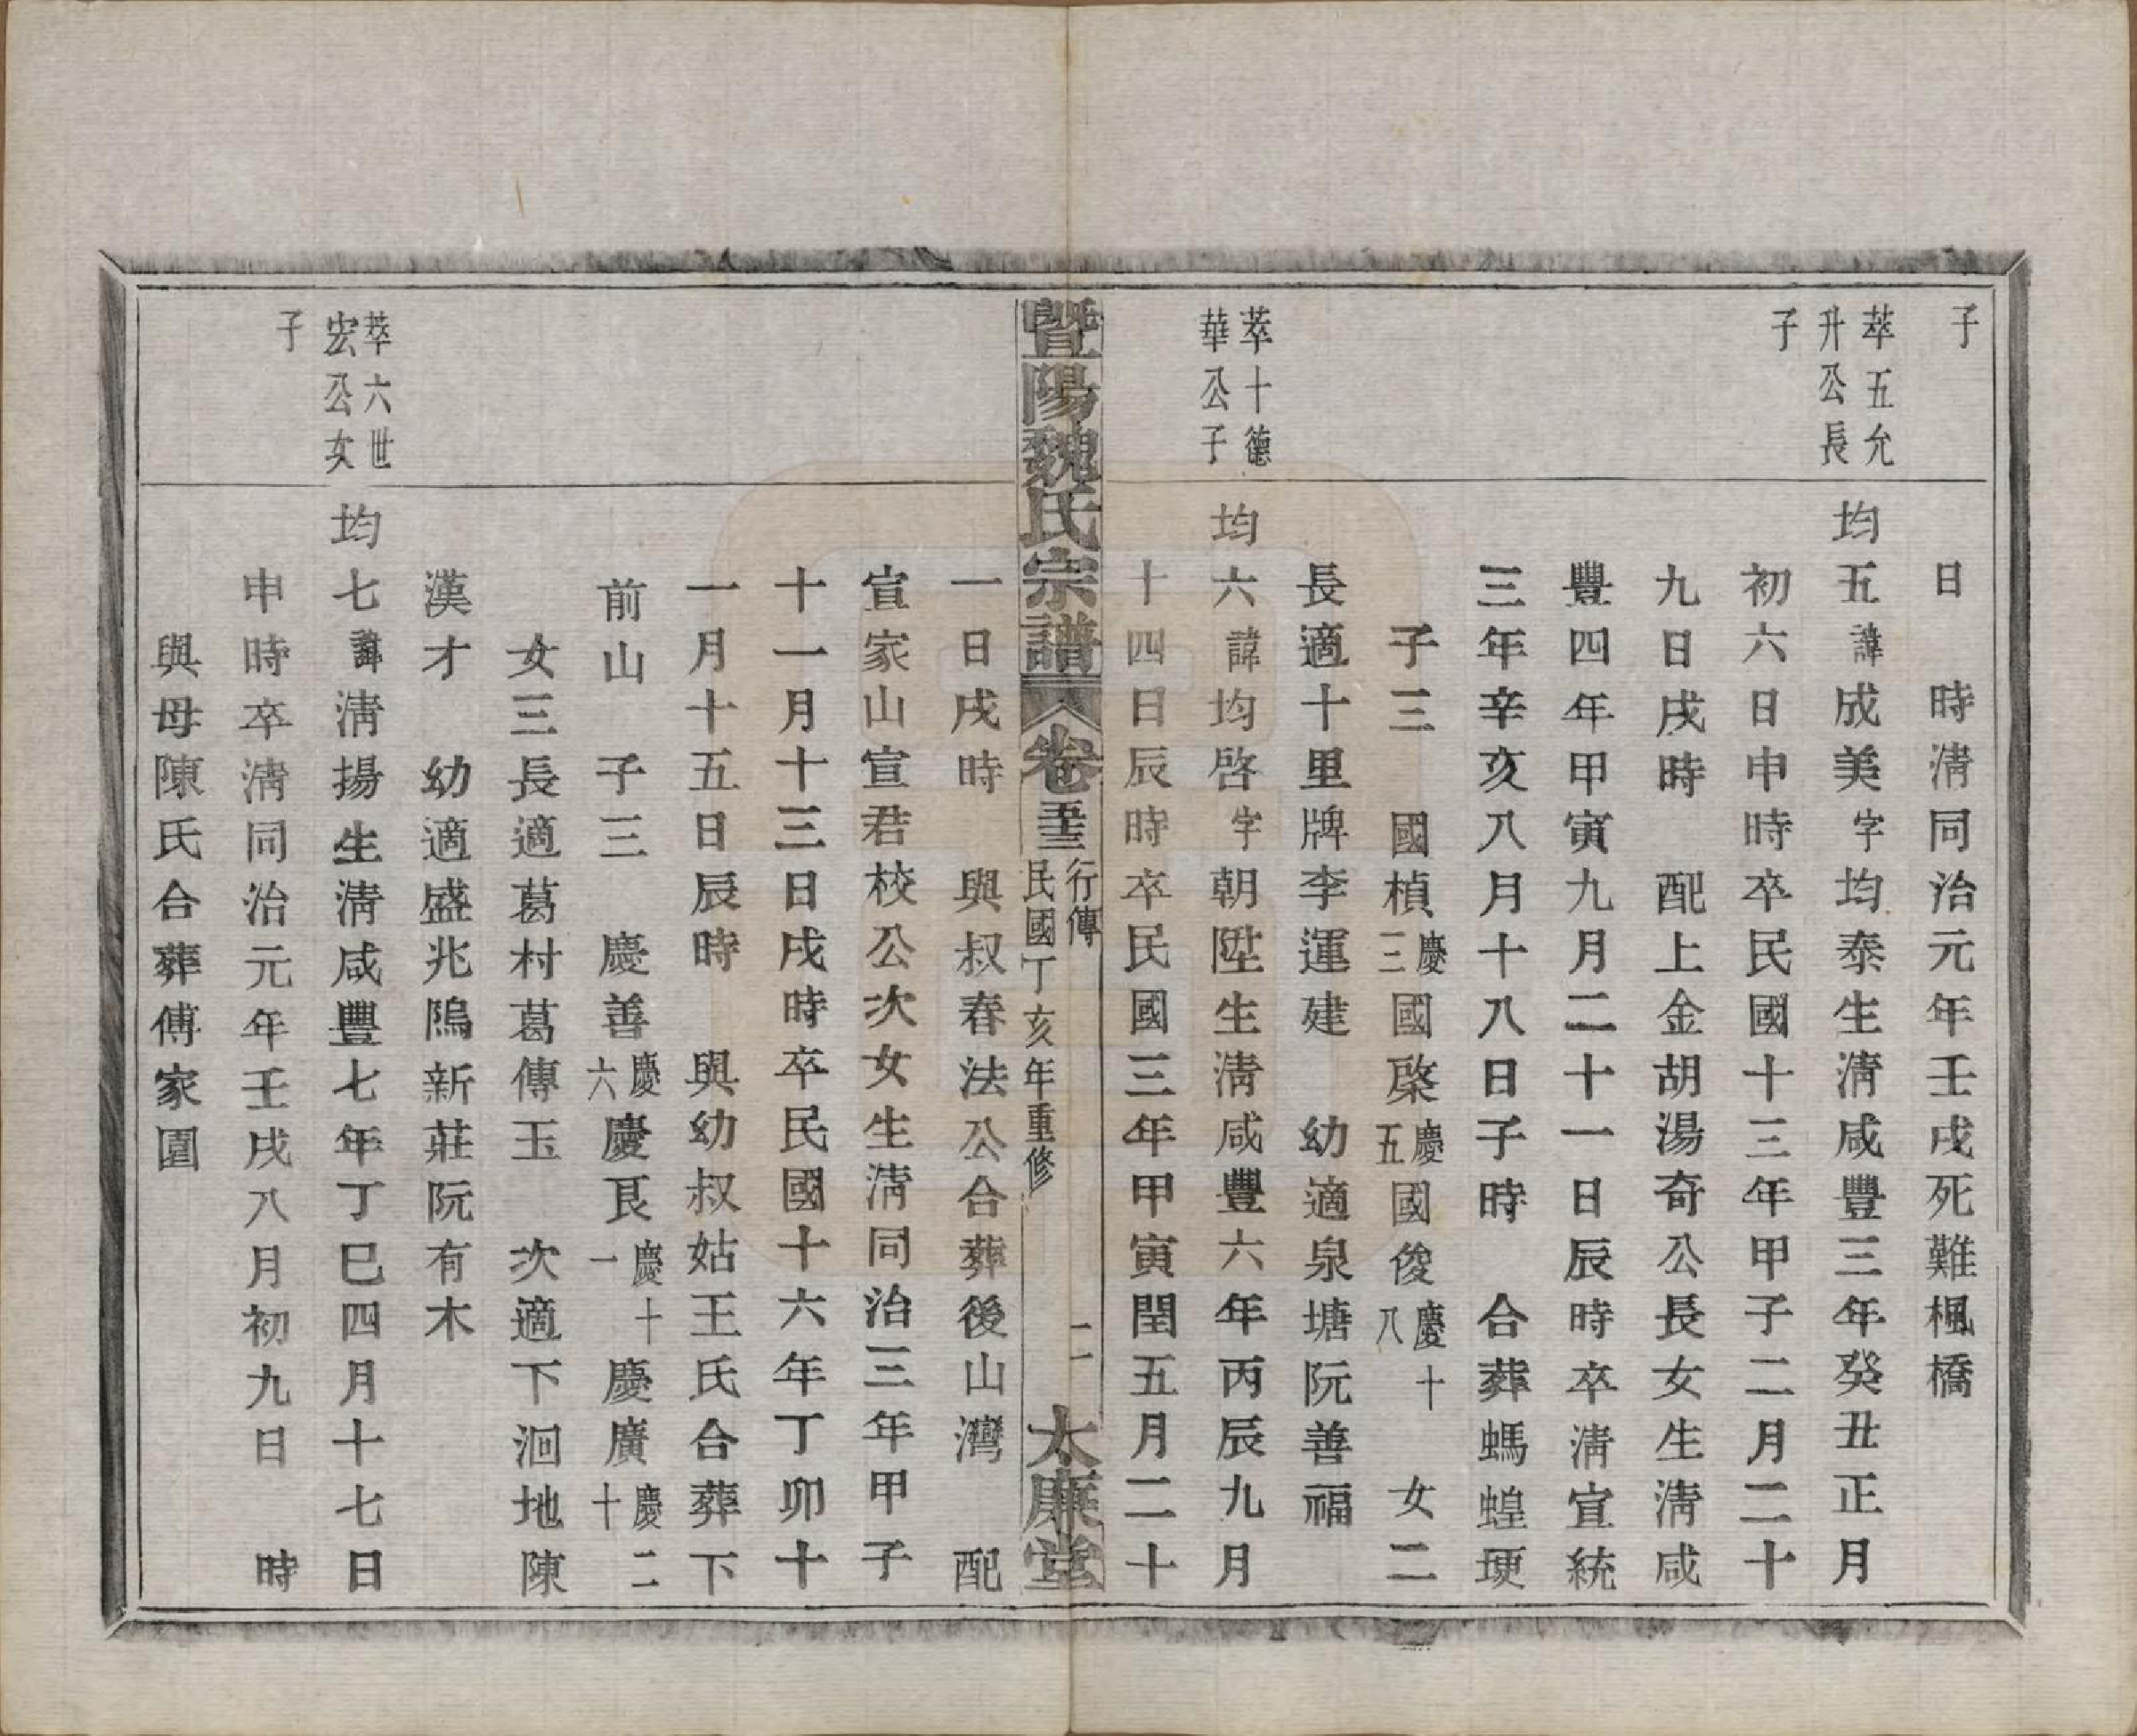 子
日　時淸同治元年壬戌死難楓橋
萃五允
升公長
子
均五諱成美字均泰生淸咸豐三年癸丑正月
初六日申時卒民國十三年甲子二月二十
九日戌時　配上金胡湯奇公長女生淸咸
豐四年甲寅九月二十一日辰時卒淸宣統
三年辛亥八月十八日子時　合葬螞蝗㙸
子三　國楨慶三國棨慶五國俊慶十八　女二
長適十里牌李運建　幼適泉塘阮善福
萃十德
華公子
均六諱均啓字朝陞生淸咸豐六年丙辰九月
十四日辰時卒民國三年甲寅閏五月二十
暨陽魏氏宗譜　卷五十三　行傳　民國丁亥年重修　二　太廉堂
一日戌時　與叔春法公合葬後山灣　配
宣家山宣君校公次女生淸同治三年甲子
十一月十三日戌時卒民國十六年丁卯十
一月十五日辰時　與幼叔姑王氏合葬下
前山　子三　慶善慶六慶艮慶十一慶廣慶二十
女三長適葛村葛傳玉　次適下洄地陳
漢才　幼適盛兆隖新莊阮有木
萃六世
宏公女
子
均七諱淸揚生淸咸豐七年丁巳四月十七日
申時卒淸同治元年壬戌八月初九日　時
與母陳氏合葬傅家圍